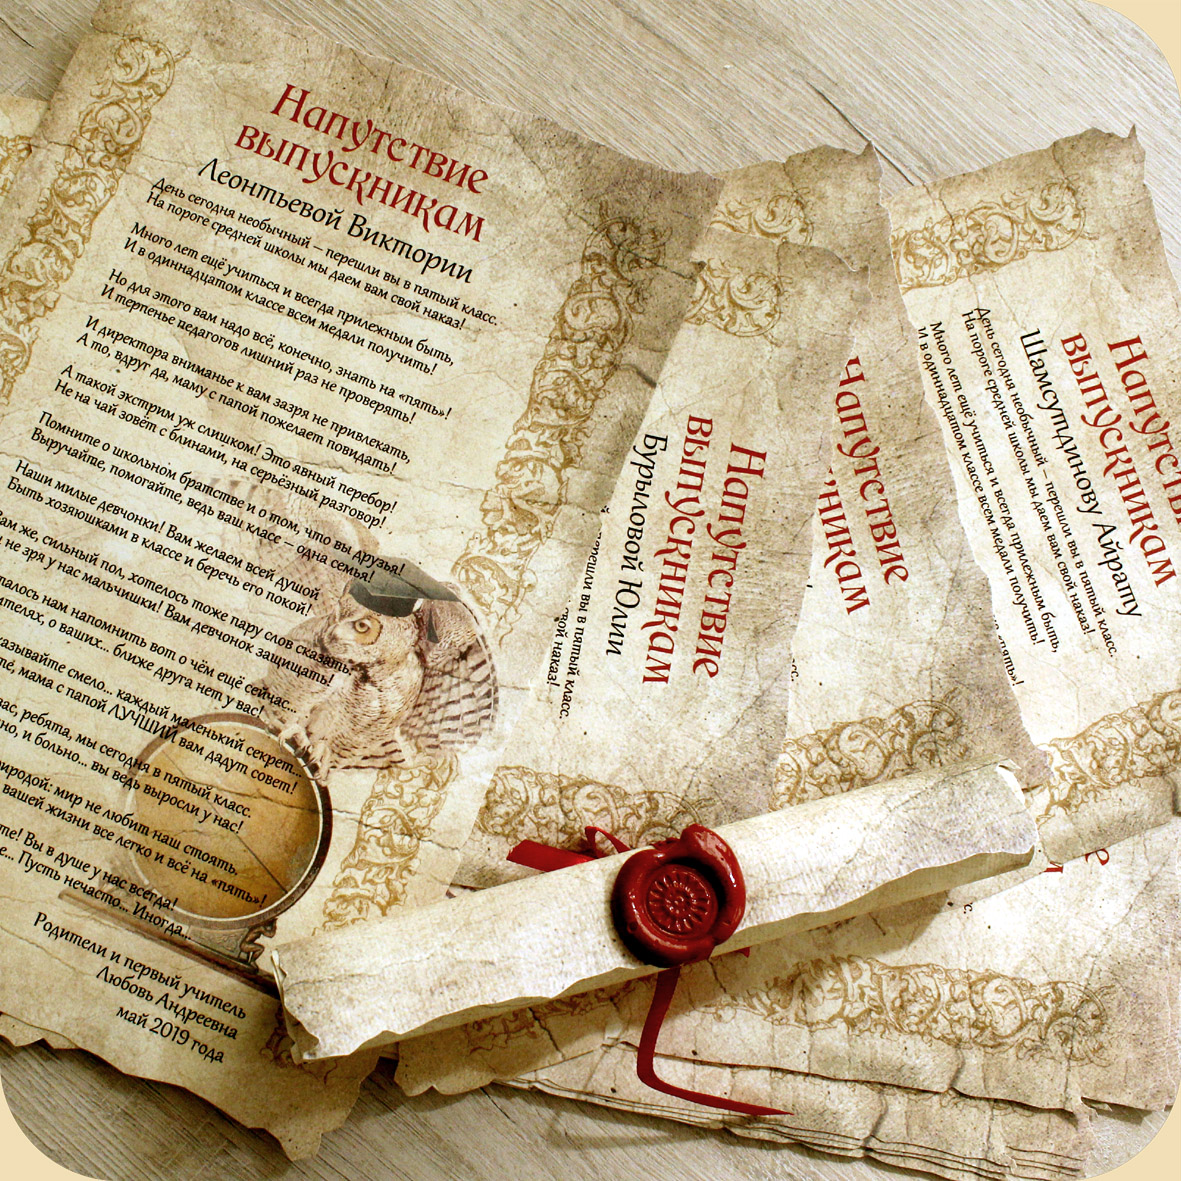 Напутствие
выпускникам
Леонтьевой Виктории
День сегодня необычный – перешли вы в пятый класс.
На пороге средней школы мы даем вам свой наказ!
Много лет ещё учиться и всегда прилежным быть,
И в одиннадцатом классе всем медали получить!
Но для этого вам надо всё, конечно, знать на «пять»!
И терпенье педагогов лишний раз не проверять!
И директора вниманье к вам зазря не привлекать,
А то, вдруг да, маму с папой пожелает повидать!
А такой экстрим уж слишком! Это явный перебор!
Не на чай зовёт с блинами, на серьёзный разговор!
Помните о школьном братстве и о том, что вы друзья!
Выручайте, помогайте, ведь ваш класс – одна семья!
Наши милые девчонки! Вам желаем всей душой
Быть хозяюшками в классе и беречь его покой!
Вам же, сильный пол, хотелось тоже пару слов сказать,
не зря у нас мальчишки! Вам девчонок защищать!
нам напомнить вот о чём ещё сейчас...
о ваших... ближе друга нет у вас!
смело... каждый маленький секрет...
мама с папой ЛУЧШИЙ вам дадут совет!
ребята, мы сегодня в пятый класс.
и больно... вы ведь выросли у нас!
мир не любит наш стоять,
вашей жизни все легко и всё на «пять»!
Вы в душе у нас всегда!
Пусть нечасто... Иногда...
Родители и первый учитель
Любовь Андреевна
май 2019 года
Напутствие
выпускникам
Бурыловой Юлии
вы в пятый класс.
свой наказ!
Напутствие
Напутствие
выпускникам
Шамсутдинову Айрату
День сегодня необычный – перешли вы в пятый класс.
На пороге средней школы мы даем вам свой наказ!
Много лет ещё учиться и всегда прилежным быть,
И в одиннадцатом классе всем медали получить!
«пять»!